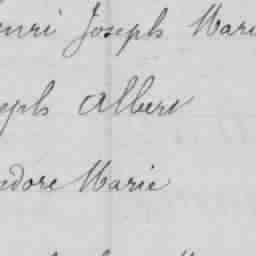 enri Joseph Mari
eph Albert
dore Marie